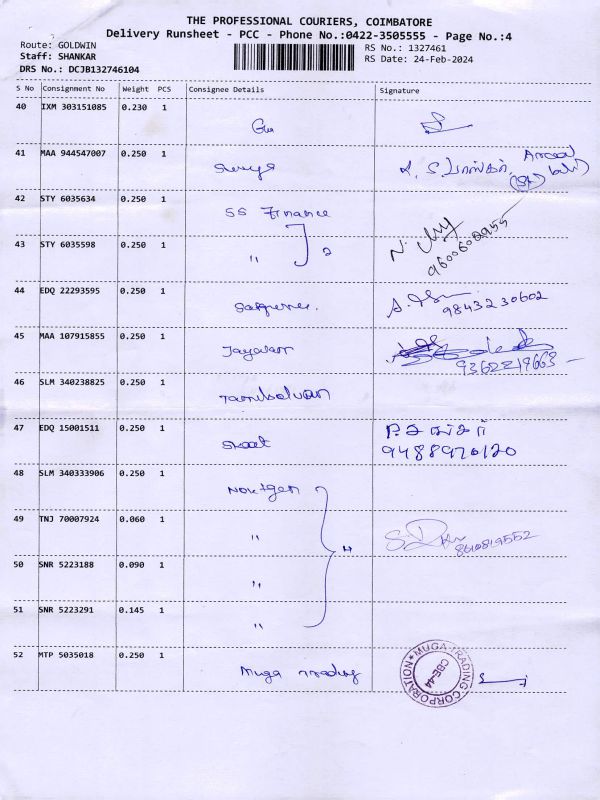 THE PROFESSIONAL COURIERS, COIMBATORE
Delivery Runsheet - PCC - Phone No.:0422-3505555 - Page No.:4
Route: GOLDWIN
RS No.: 1327461
Staff: SHANKAR
RS Date: 24-Feb-2024
DRS No.: DCJB132746104
S No Consignment No Weight PCS Consignee Details Signature
40 IXM 303151085 0.230 1
41 MAA 944547007 0.250 1
Surya
42 STY 6035634 0.250 1
SS Finance
43 STY 6035598 0.250 1
" 2
9600602955
44 EDQ 22293595 0.250 1
9843230602
45 MAA 107915855 0.250 1
Jayavan
9362219663
46 SLM 340238825 0.250 1
Tamilselvan
47 EDQ 15001511 0.250 1
9488970120
48 SLM 340333906 0.250 1
49 TNJ 70007924 0.060 1
" 4
8610819552
50 SNR 5223188 0.090 1
"
51 SNR 5223291 0.145 1
"
52 MTP 5035018 0.250 1
Muga Trading
MUGA TRADING CORPORATION
CBE-44